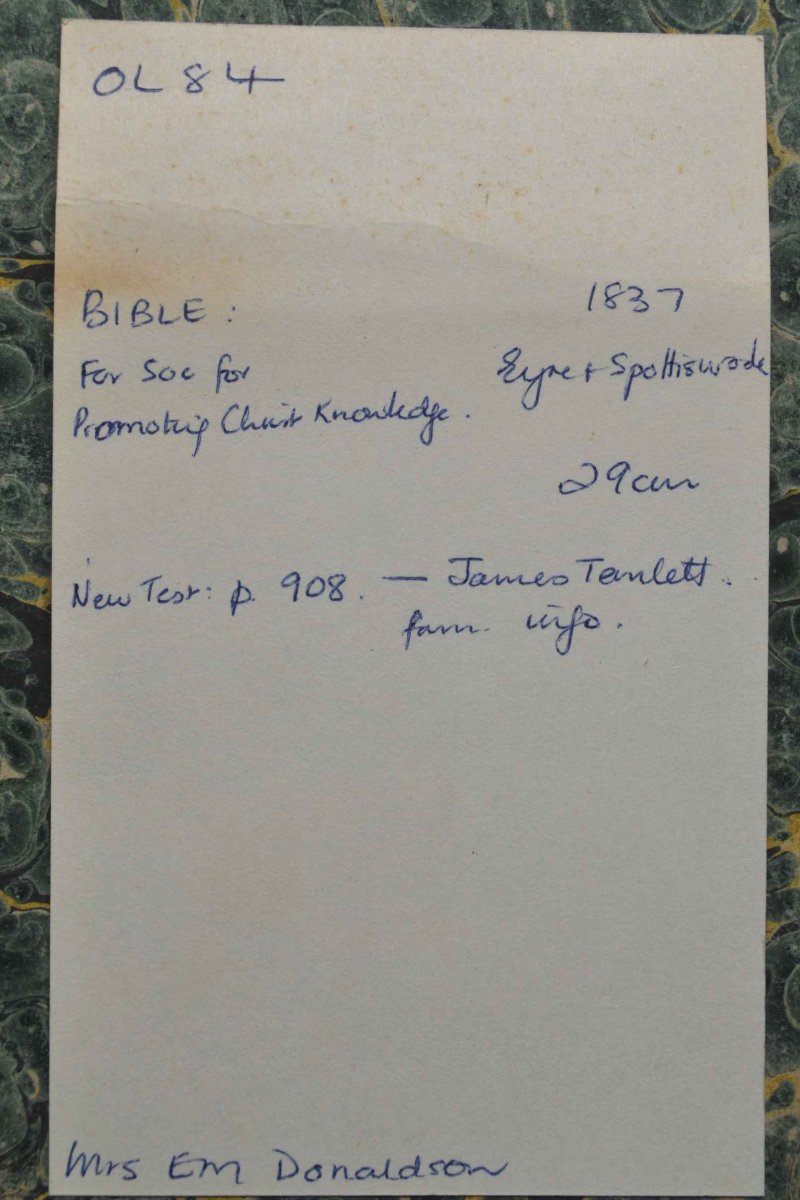 OL 84
BIBLE : 1837
For Soc for Eyre + Spottiswode
Promoting Christ Knowledge .
29cm
New Test: p. 908 . — James
fam. info .
Mrs EM Donaldson